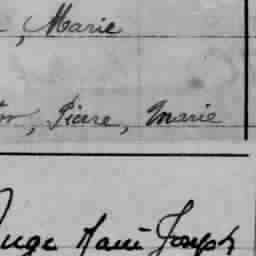 , Marie
, Pierre, Marie
Marie Joseph